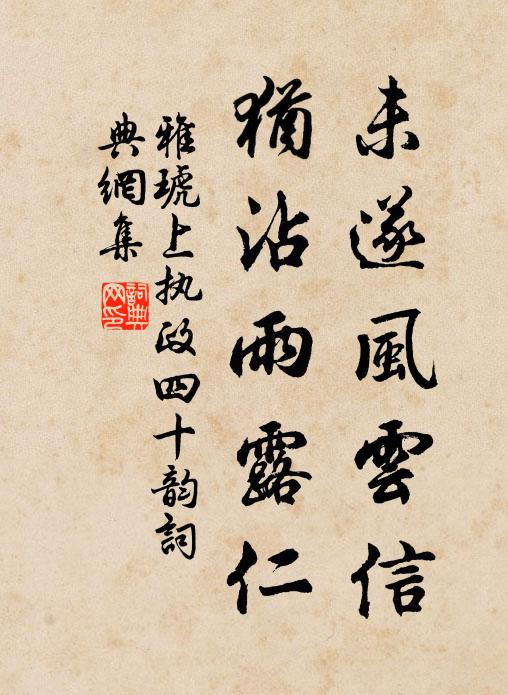 未遂風雲信
猶沾雨露仁
雅琥上执政四十韵詞
典網集
詞典
网印